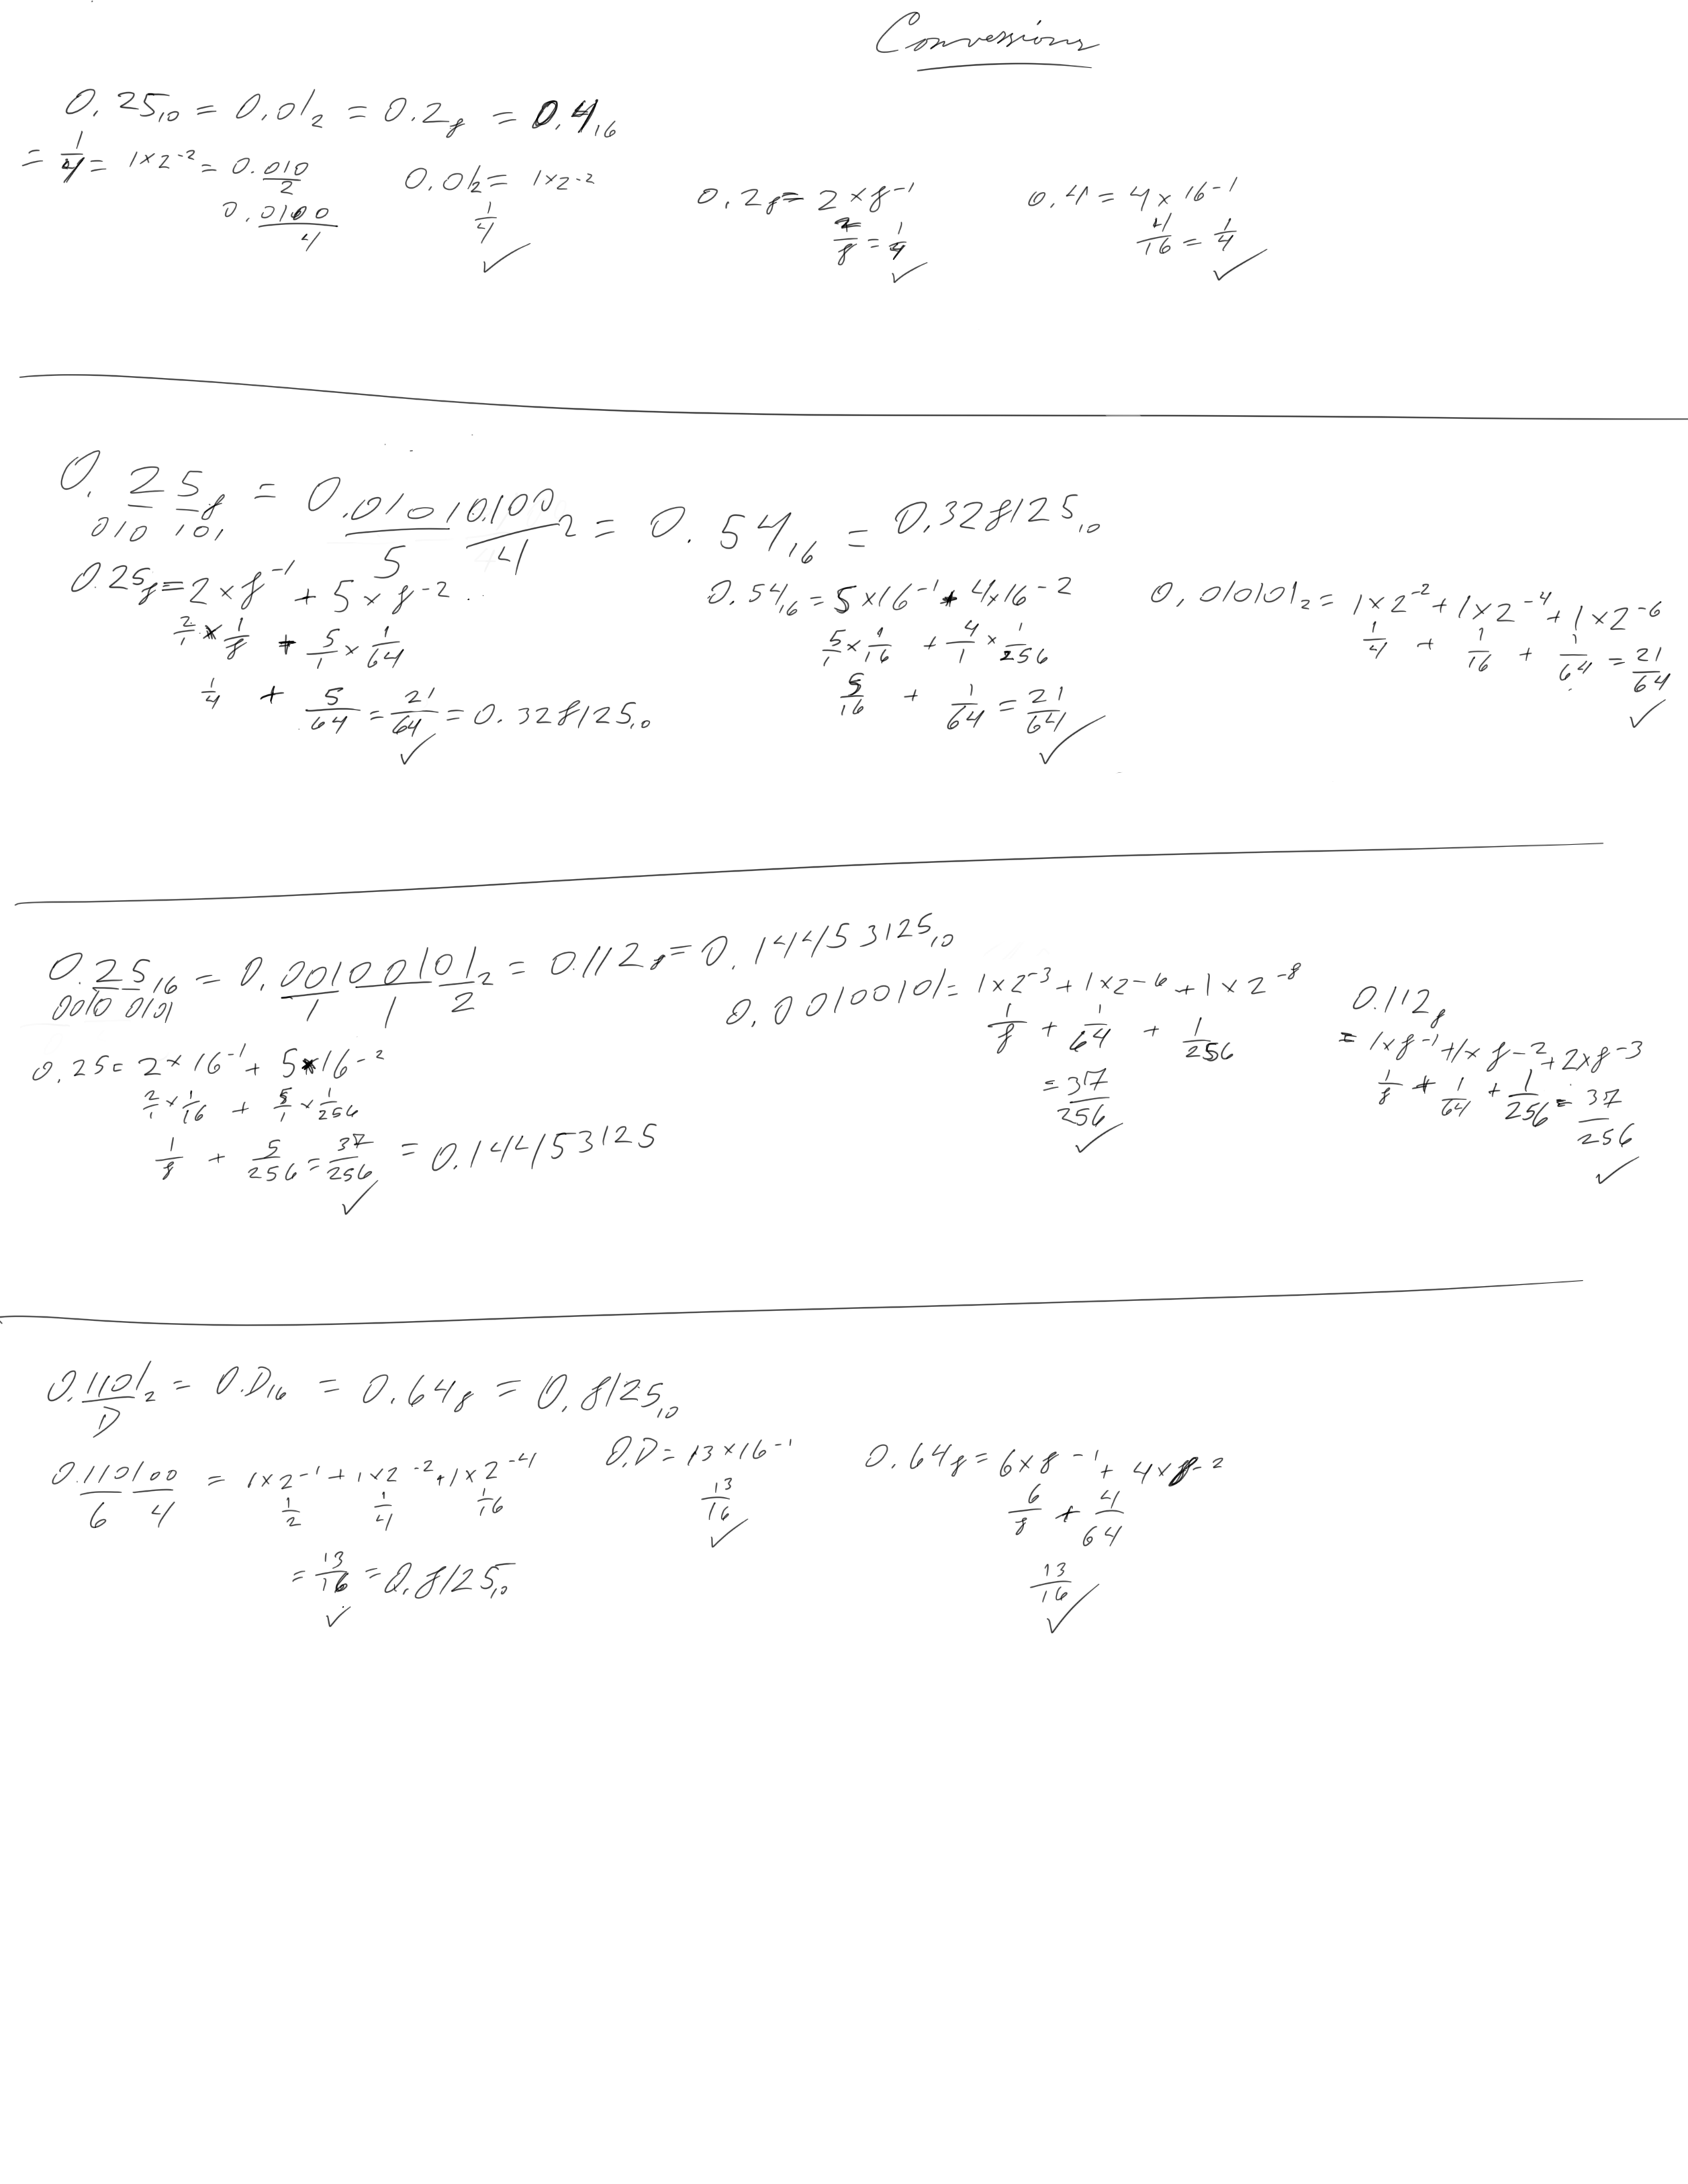 Conversions
0.25₁₀ = 0.01₂ = 0.2₈ = 0.4₁₆
= 1/4 = 1×2⁻² = 0.010
2
0.0100
4
0.01₂ = 1×2⁻²
1/4 ✓
0.2₈ = 2×8⁻¹
2/8 = 1/4 ✓
0.4 = 4×16⁻¹
4/16 = 1/4 ✓
0.25₈ = 0.01010100₂ = 0.54₁₆ = 0.328125₁₀
010 101
5 4
0.25₈ = 2×8⁻¹ + 5×8⁻²
2/1 × 1/8 + 5/1 × 1/64
1/4 + 5/64 = 21/64 = 0.328125₁₀
✓
0.54₁₆ = 5×16⁻¹ + 4×16⁻²
5/1 × 1/16 + 4/1 × 1/256
5/16 + 1/64 = 21/64
✓
0.010101₂ = 1×2⁻² + 1×2⁻⁴ + 1×2⁻⁶
1/4 + 1/16 + 1/64 = 21/64
✓
0.25₁₆ = 0.00100101₂ = 0.112₈ = 0.14453125₁₀
0010 0101
1 1 2
0.25 = 2×16⁻¹ + 5×16⁻²
2/1 × 1/16 + 5/1 × 1/256
1/8 + 5/256 = 37/256 = 0.14453125
✓
0.00100101 = 1×2⁻³ + 1×2⁻⁶ + 1×2⁻⁸
1/8 + 1/64 + 1/256
= 37/256
✓
0.112₈
= 1×8⁻¹ + 1×8⁻² + 2×8⁻³
1/8 + 1/64 + 1/256 = 37/256
✓
0.1101₂ = 0.D₁₆ = 0.64₈ = 0.8125₁₀
D
0.110100 = 1×2⁻¹ + 1×2⁻² + 1×2⁻⁴
6 4
1/2 1/4 1/16
= 13/16 = 0.8125₁₀
✓
0.D = 13×16⁻¹
13/16
✓
0.64₈ = 6×8⁻¹ + 4×8⁻²
6/8 + 4/64
13/16
✓